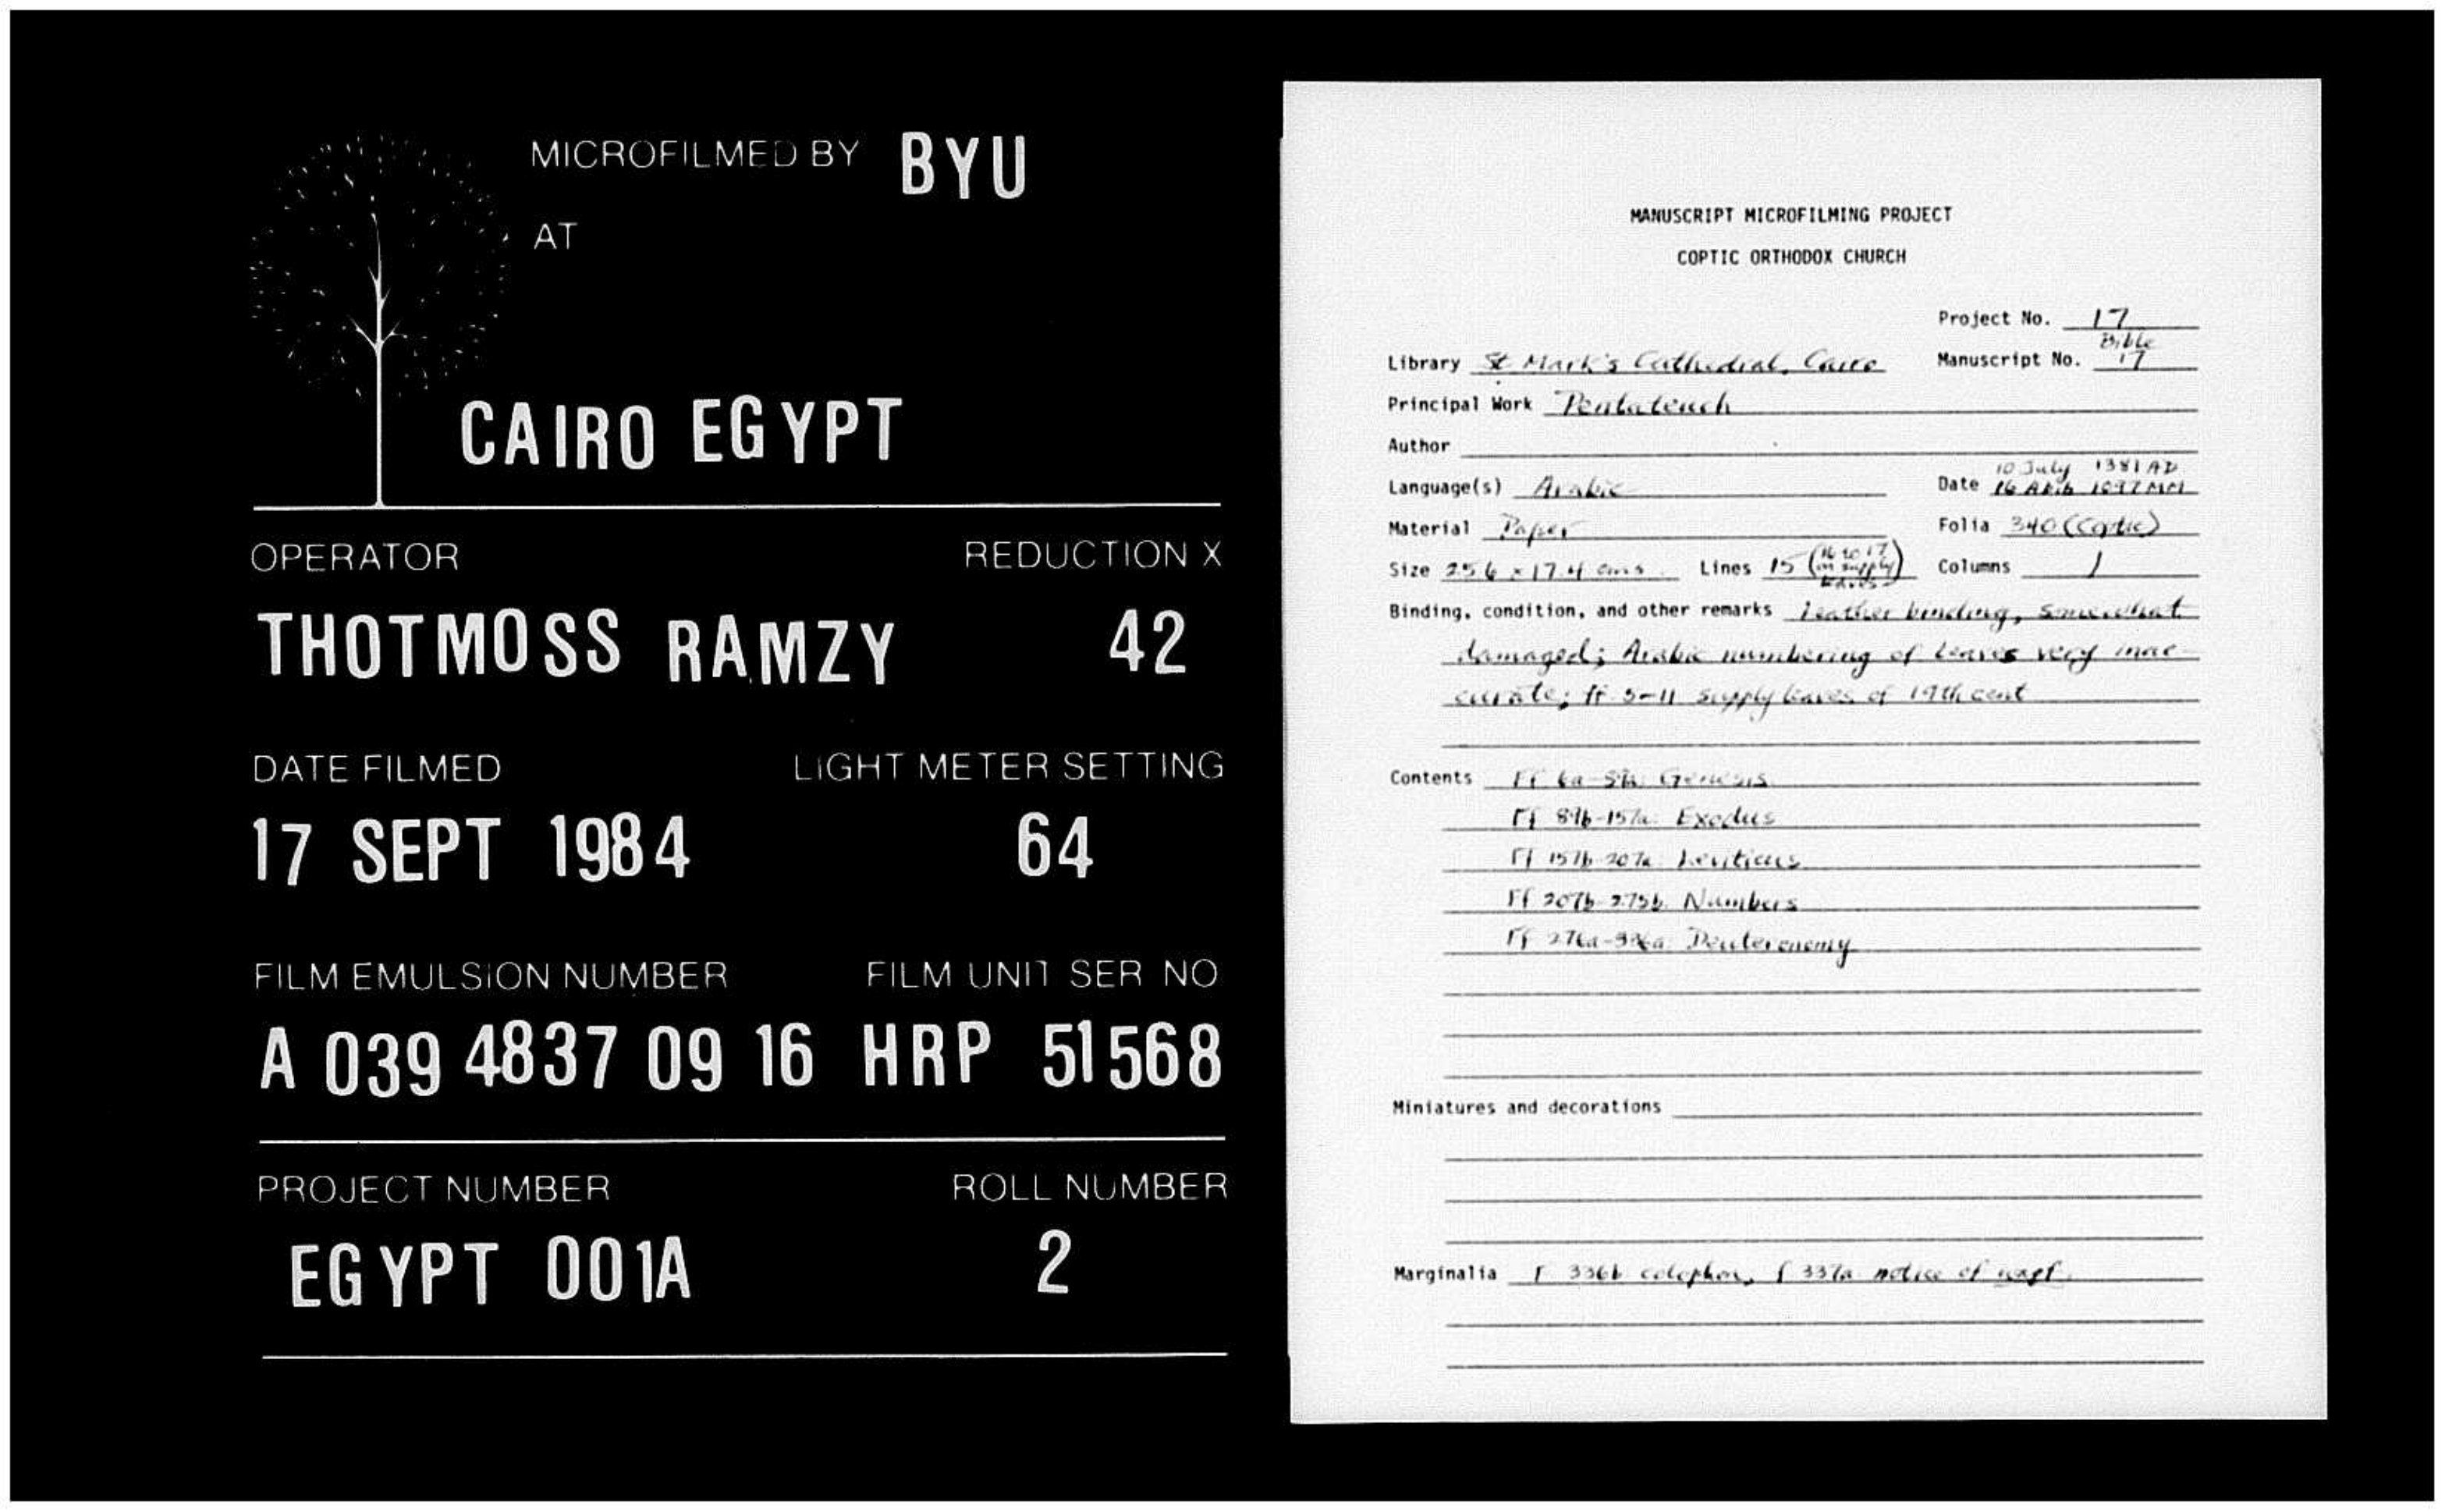 MICROFILMED BY BYU
AT
CAIRO EGYPT
OPERATOR REDUCTION X
THOTMOSS RAMZY 42
DATE FILMED LIGHT METER SETTING
17 SEPT 1984 64
FILM EMULSION NUMBER FILM UNIT SER NO
A 039 4837 09 16 HRP 51568
PROJECT NUMBER ROLL NUMBER
EGYPT 001A 2
MANUSCRIPT MICROFILMING PROJECT
COPTIC ORTHODOX CHURCH
Project No. 17
Bible
Library St Mark's Cathedral, Cairo Manuscript No. 17
Principal Work Pentateuch
Author
10 July 1381 AD
Language(s) Arabic Date 16 Abib 1097 MM
Material Paper Folia 340 (Coptic)
Size 25.6 × 17.4 cms. Lines 15 (16 to 17 on supply leaves) Columns 1
Binding, condition, and other remarks leather binding, somewhat
damaged; Arabic numbering of leaves very inac-
curate; ff. 5-11 supply leaves of 19th cent
Contents Ff 6a- Genesis
Ff 89b-157a: Exodus
Ff 157b-207a: Leviticus
Ff 207b-275b: Numbers
Ff 276a-336a: Deuteronomy
Miniatures and decorations
Marginalia F 336b colophon, f 337a notice of waqf.